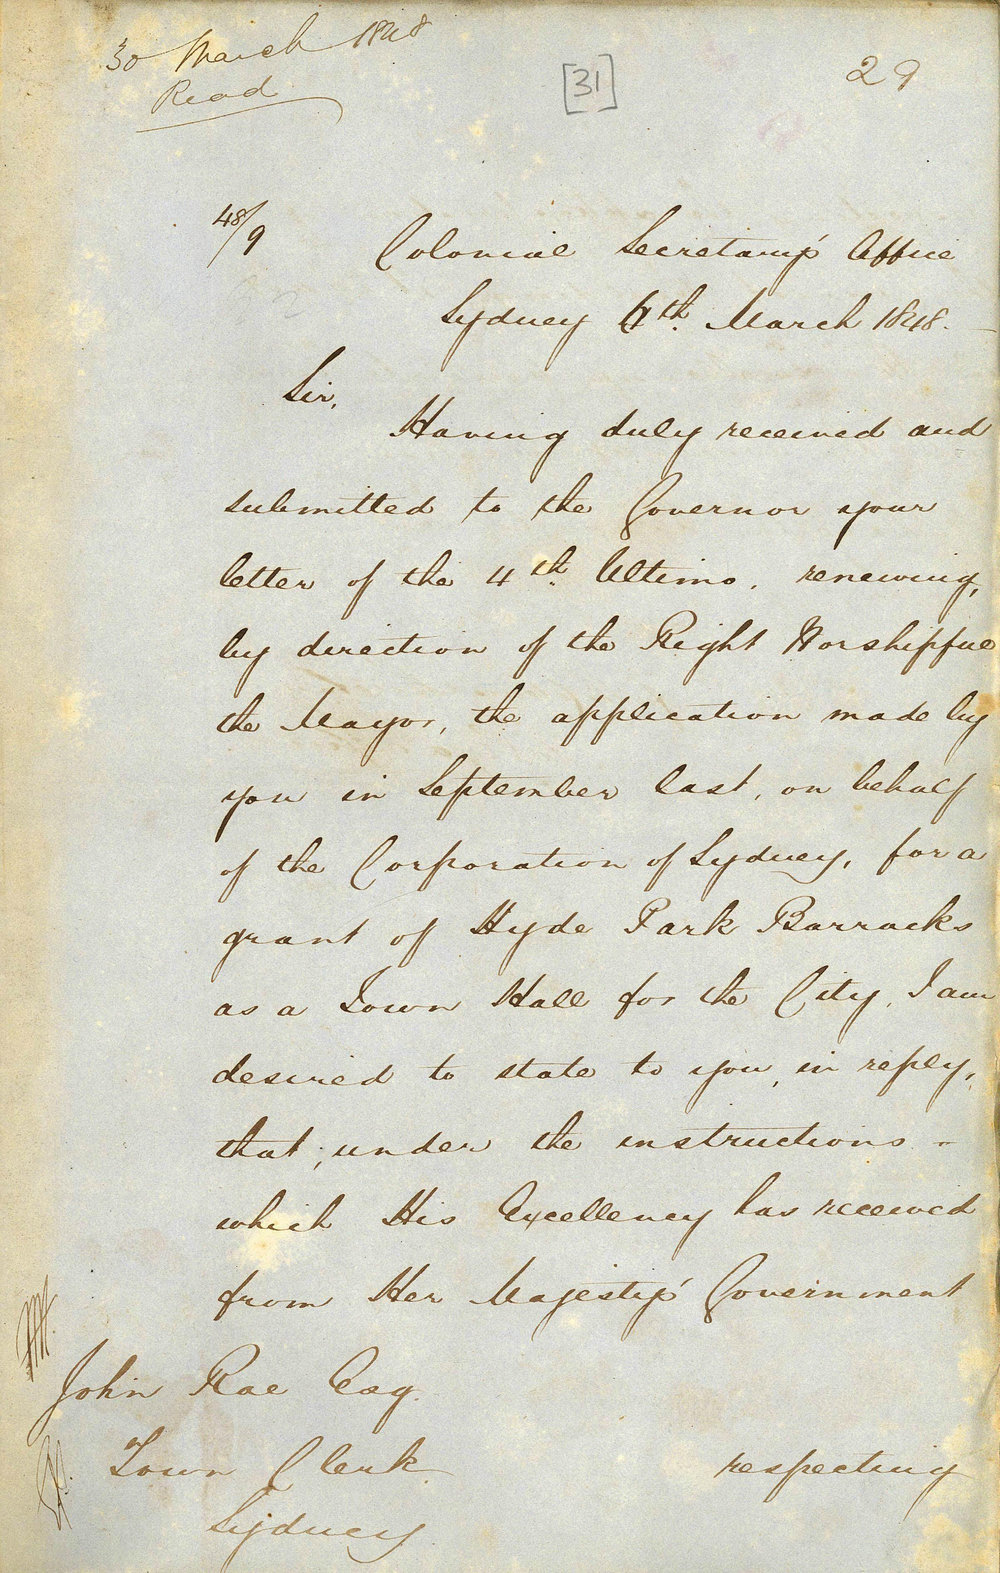 30 March 1848
Read
[31]
29
48/9
Colonial Secretary's Office
Sydney 4th March 1848.
Sir,
Having duly received and
submitted to the Governor your
letter of the 4th Ultimo, renewing,
by direction of the Right Worshipful
the Mayor, the application made by
you in September last, on behalf
of the Corporation of Sydney, for a
grant of Hyde Park Barracks
as a Town Hall for the City, I am
desired to state to you, in reply,
that, under the instructions -
which His Excellency has received
from Her Majesty's Government
John Rae Esq.
Town Clerk
respecting
Sydney